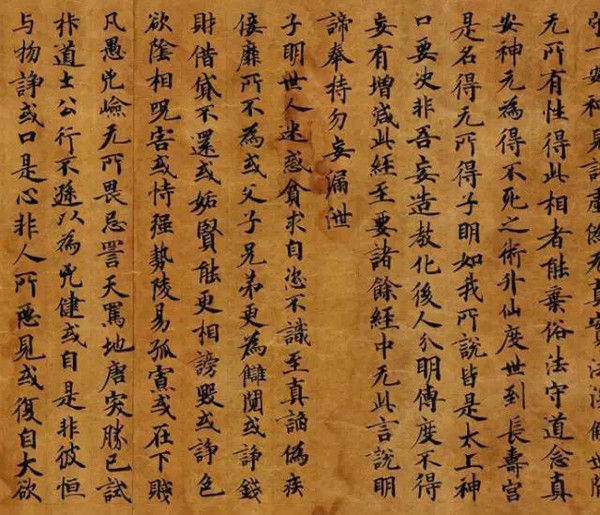 守一安神見无真實法深解世間
无所有性得此相者能棄俗法守道念真
安神无為得不死之術升仙度世到長壽宮
是名得无所得子明如我所說皆是太上神
口要决非吾妄造教化後人分明傳度不得
妄有增減此經至要諸餘經中无此言說明
諦奉持勿妄漏泄
子明世人迷惑貪求自恣不識至真諂偽疾
廉所不為或父子兄弟更為讎鬪或諍錢
財借貸不還或妬賢能更相謗毀或諍色
欲陰相呪害或恃强勢陵易孤寡或在下賤
凡愚兇嶮无所畏忌詈天罵地唐突勝己試
道士公行不遜以為兇健或自是非彼恒
与物諍或口是心非人所惡見或復自大欲